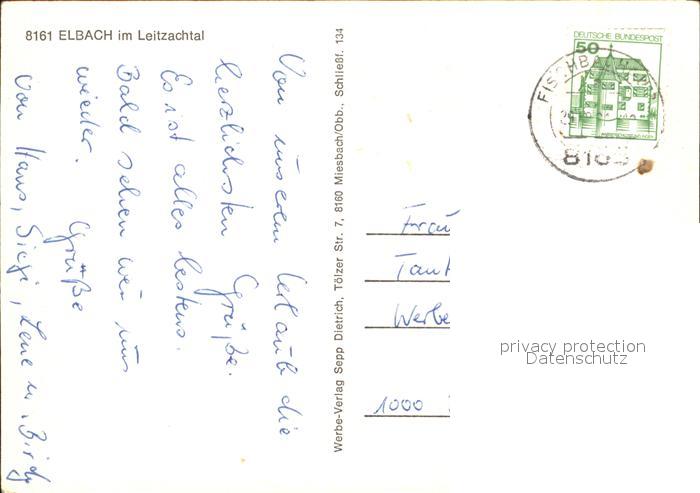 8161 ELBACH im Leitzachtal
Von unserem Urlaub die
herzlichsten Grüße.
Es ist alles bestens.
Bald sehen wir uns
wieder.
Grüße
von Hans, Sigi, Lene u. Birdy
Werbe-Verlag Sepp Dietrich, Tölzer Str. 7, 8160 Miesbach/Obb., Schließf. 134
DEUTSCHE BUNDESPOST
50
FISCHBACHAU
Frau
Werbe
1000
privacy protection
Datenschutz